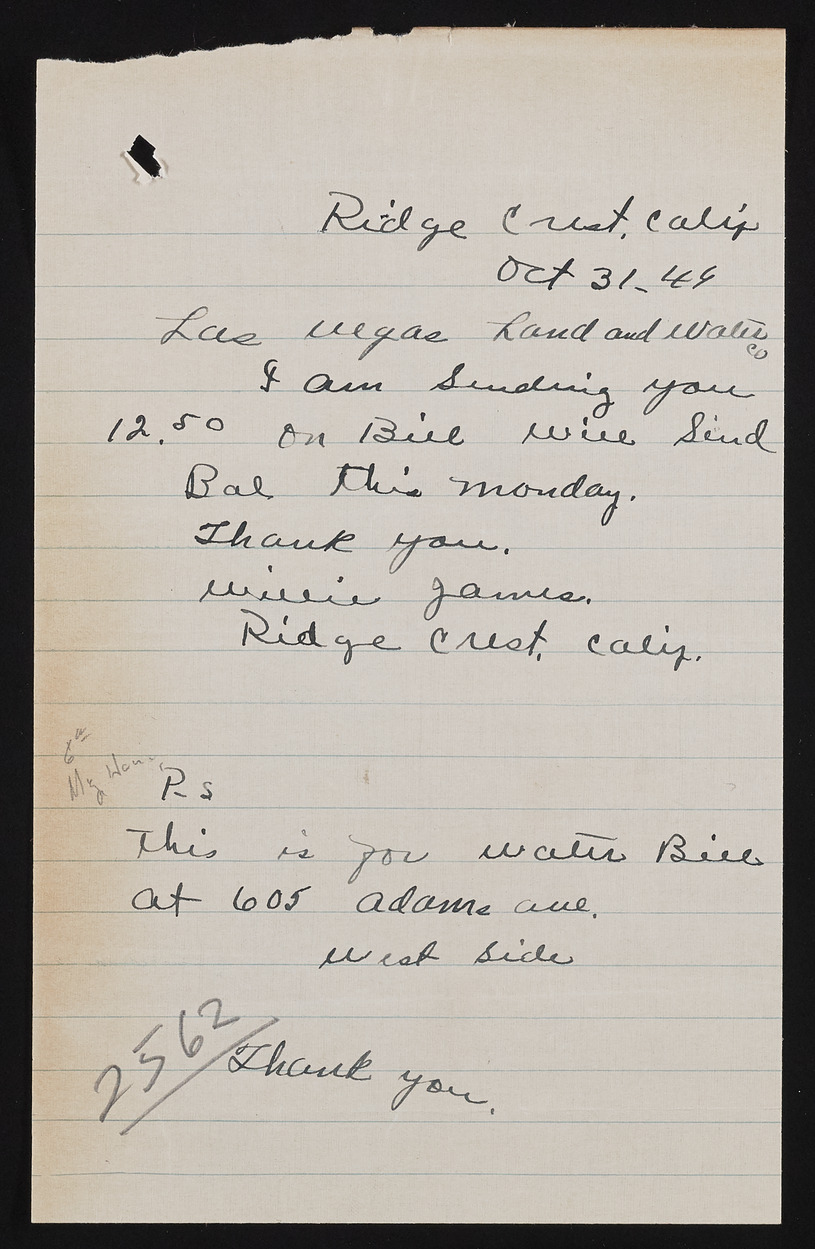 Ridge Crest, Calif
Oct 31-49
Las Vegas Land and Water
Co
I am Sending you
12.50 on Bill will Send
Bal this monday.
Thank you.
Willie James.
Ridge Crest, Calif.
P.S
This is for water Bill
at 605 adams ave.
West Side
2562
Thank you.